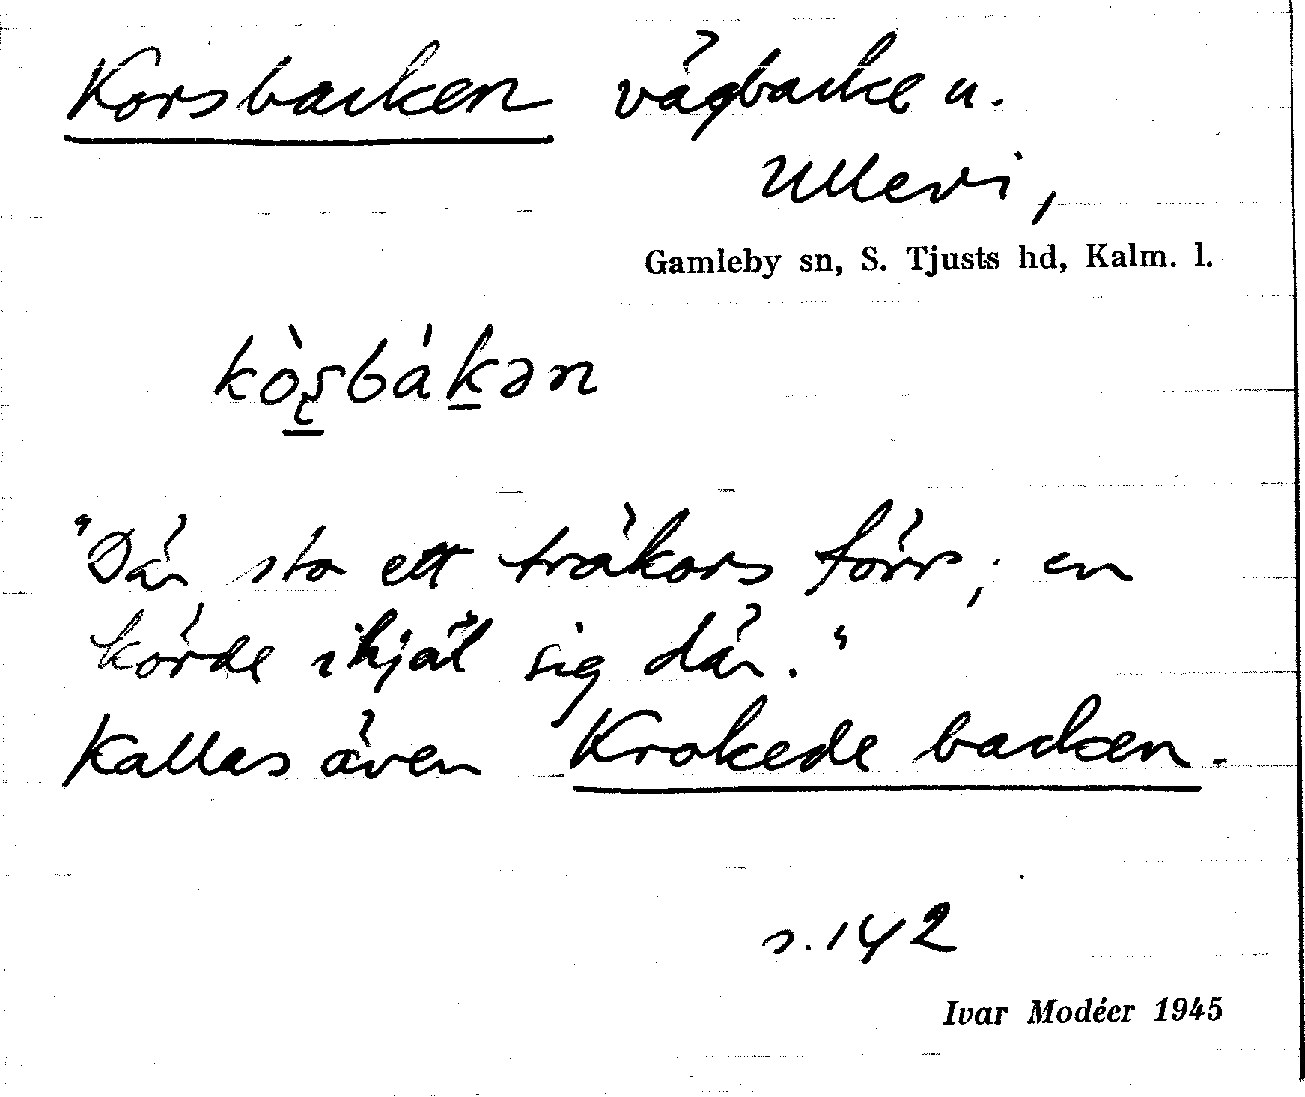 Korsbacken vägbacke u.
Ullevi,
Gamleby sn, S. Tjusts hd, Kalm. l.
kòʂbákən
"Där sto ett träkors förr; en
körde ihjäl sig där."
Kallas även Krokede backen.
s. 142
Ivar Modéer 1945